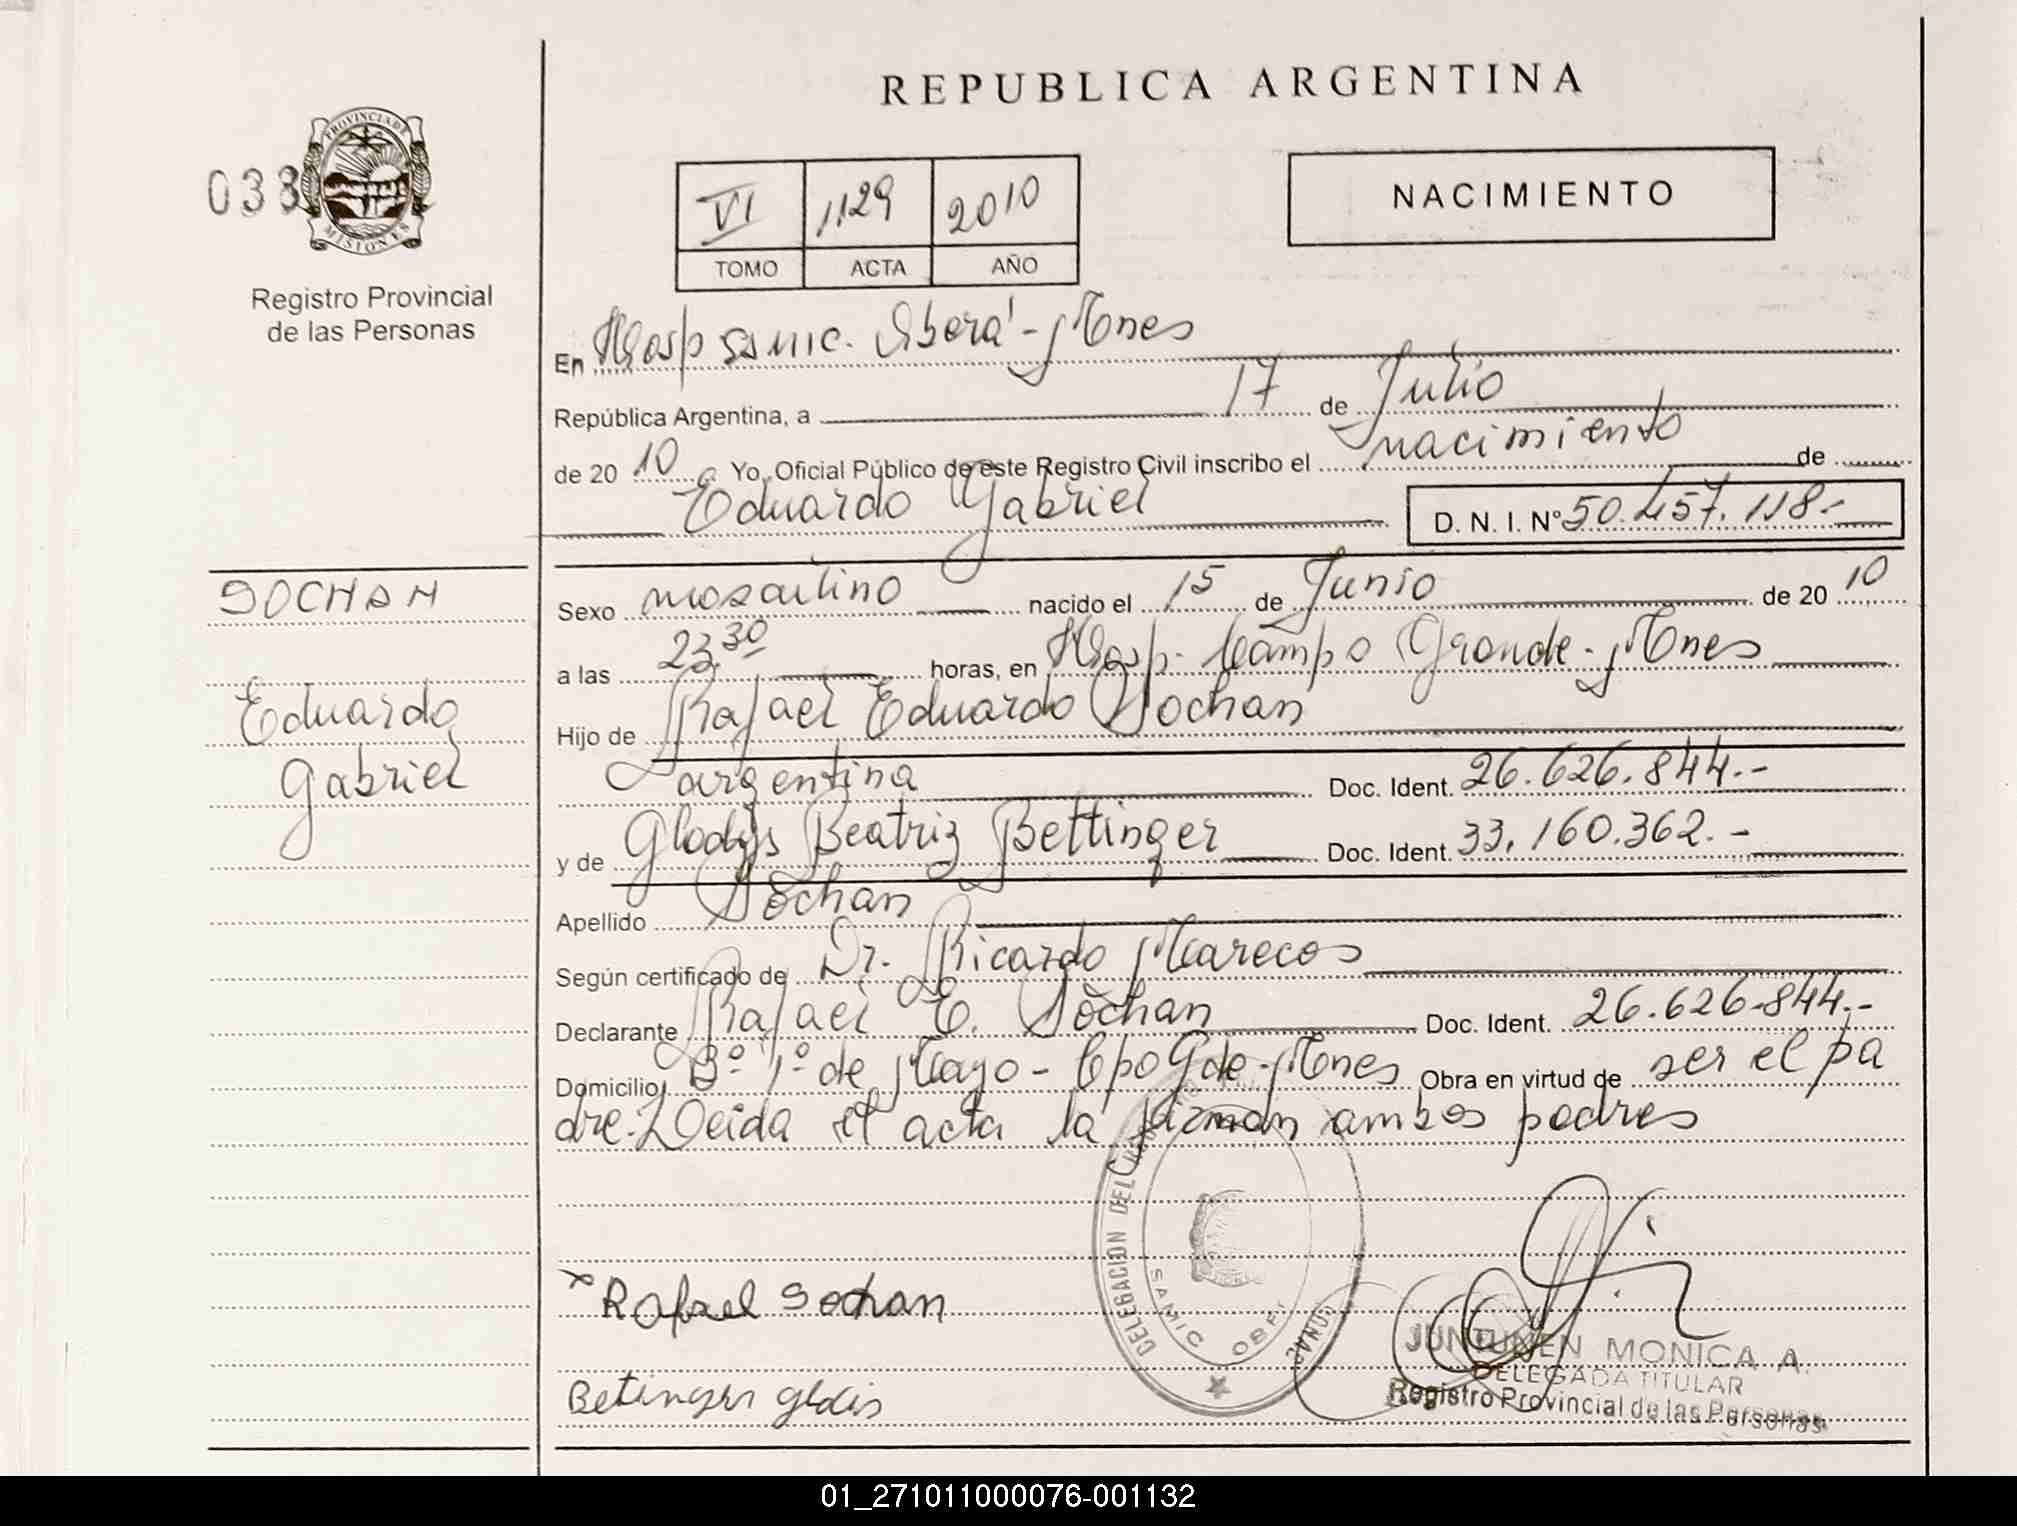 REPUBLICA ARGENTINA
033
PROVINCIA DE
MISIONES
Registro Provincial
de las Personas
VI 1129 2010
TOMO ACTA AÑO
NACIMIENTO
En Hosp samic. Obera - Mnes
República Argentina, a 17 de Julio
de 20 10 Yo, Oficial Público de este Registro Civil inscribo el nacimiento de
Eduardo Gabriel D. N. I. Nº 50.457.118.-
SOCHAN
Eduardo
Gabriel
Sexo masculino nacido el 15 de Junio de 20 10
a las 23,30 horas, en Hosp. Campo Grande - Mnes
Hijo de Rafael Eduardo Sochan
argentina Doc. Ident. 26.626.844.-
y de Gladys Beatriz Bettinger Doc. Ident. 33.160.362.-
Apellido Sochan
Según certificado de Dr. Ricardo Marecos
Declarante Rafael E. Sochan Doc. Ident. 26.626.844.-
Domicilio Bº 1º de Mayo - Cpo Gde - Mnes Obra en virtud de ser el pa
dre. Leida el acta la firman ambos padres
DELEGACION DEL
SAMIC
x Rafael Sochan
Betinger gladis
JUNTUNEN MONICA A.
DELEGADA TITULAR
Registro Provincial de las Personas
01_271011000076-001132